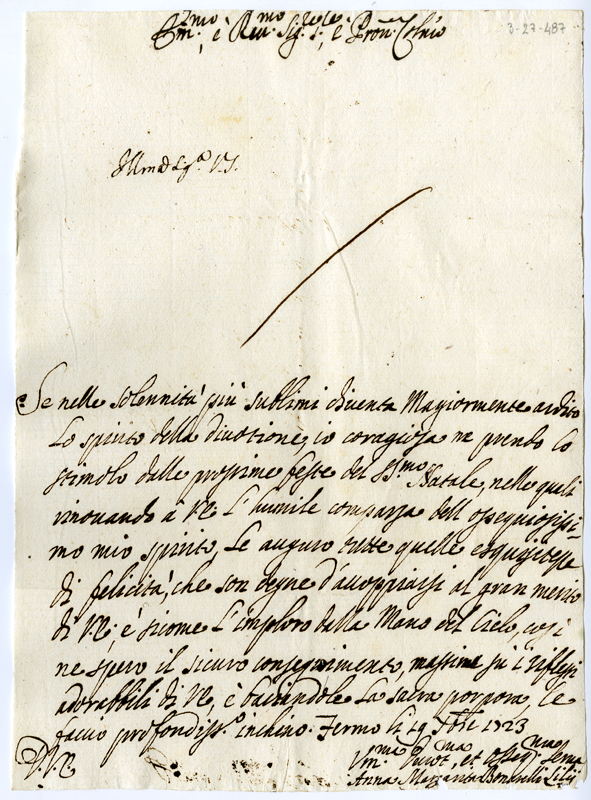 Em.mo, è Reu.mo Sig.re, è Pron.e Col.mo
3-27-487
Se nelle solennità più sublimi diuenta Magiormente ardito
Lo spirito della diuotione, io coragiosa ne prendo lo
stimolo dalle prossime feste del SS.mo Natale, nelle quali
rinouando à VE. L'humile comparsa dell ossequiosissi-
mo mio spirito, Le auguro tutte quelle esquisitesse
di felicità, che son degne d'accoppiarsi al gran merito
di VE; è sicome L'imploro dalla Mano del Cielo, così
ne spero il sicuro conseguimento, massime sù i riflessi
adorabbili di VE, è baciandole La sacra porpora, le
faccio profondiss.o inchino. Fermo li 19 Xbre 1723
D. V. E.
Um.ma Diuot.ma, et Osseq.ma Serua
Anna Margarita